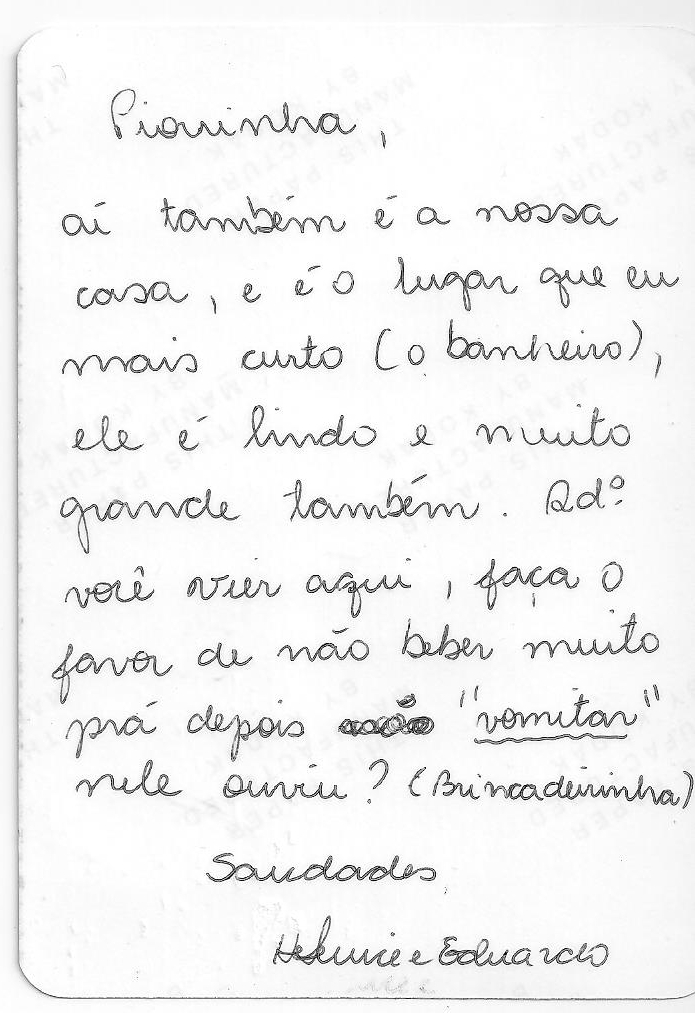 Piovinha,
aí também é a nossa
casa, e é o lugar que eu
mais curto (o banheiro),
ele é lindo e muito
grande também. Qdº
você vier aqui, faça o
favor de não beber muito
prá depois "vomitar"
nele ouviu? (Brincadeirinha)
Saudades
e Eduardo